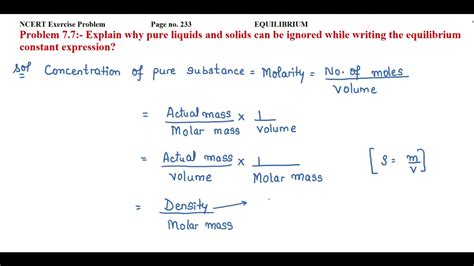 NCERT Exercise Problem Page no. 233 EQUILIBRIUM
Problem 7.7:- Explain why pure liquids and solids can be ignored while writing the equilibrium
constant expression?
Sol Concentration of pure substance = Molarity = No. of moles / Volume
= Actual mass / Molar mass × 1 / Volume
= Actual mass / Volume × 1 / Molar mass [ρ = m/v]
= Density / Molar mass